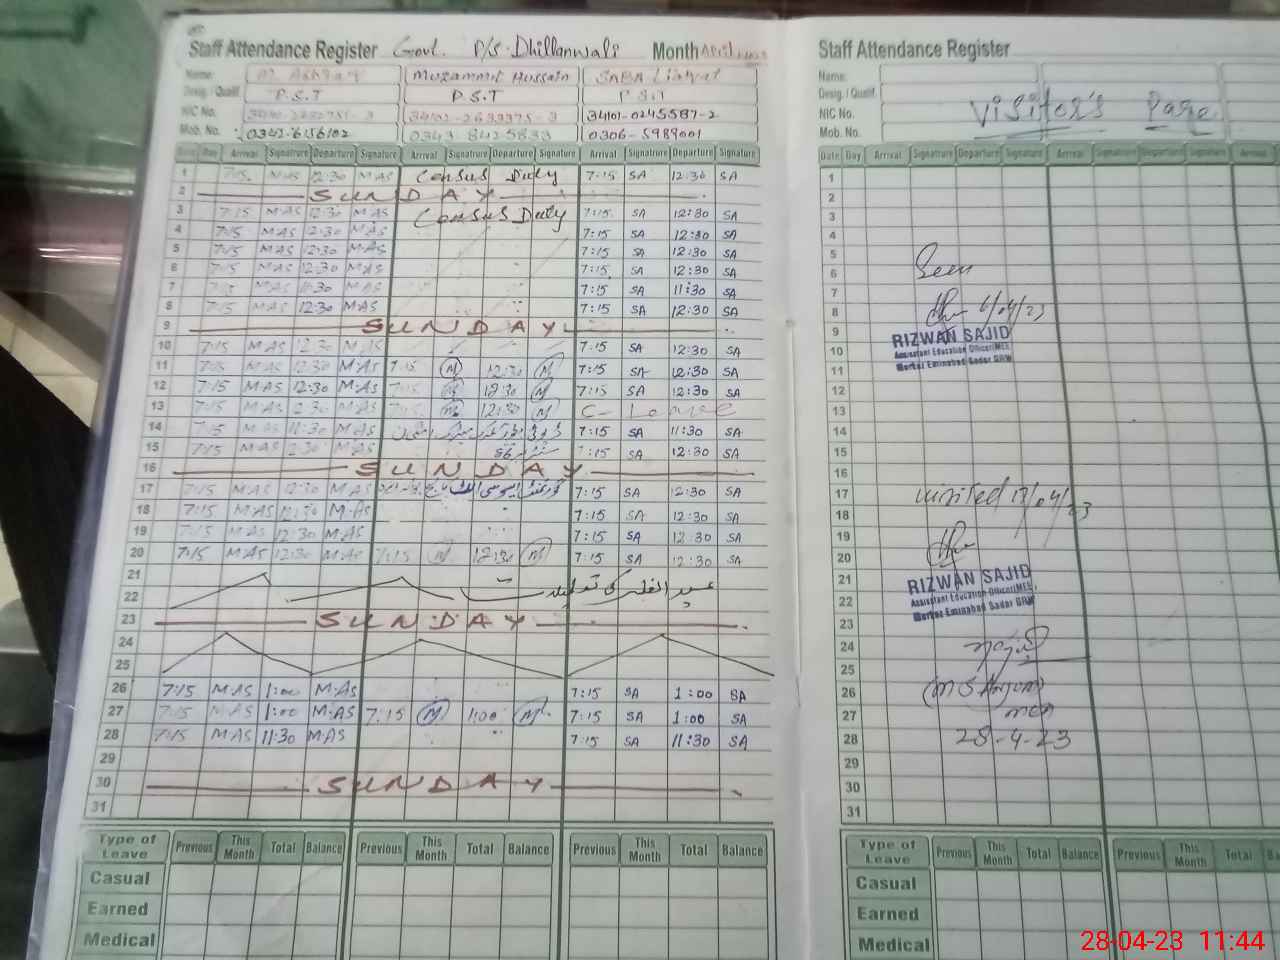 Staff Attendance Register Govt. P/S. Dhillanwali Month April
Name: M. Ashraf Muzammil Hussain SABA Liaqat
Desig. / Qualif. P.S.T P.S.T P.S.T
NIC No. 34101-0245587-2
Mob. No. 0342-6156102 0343-8425833 0306-5989001
Date Day Arrival Signature Departure Signature Arrival Signature Departure Signature Arrival Signature Departure Signature
1 7:15 M AS 12:30 M AS Census Duty 7:15 SA 12:30 SA
2 SUNDAY
3 7:15 M AS 12:30 M AS Census Duty 7:15 SA 12:30 SA
4 7:15 M AS 12:30 M AS 7:15 SA 12:30 SA
5 7:15 M AS 12:30 M AS 7:15 SA 12:30 SA
6 7:15 M AS 12:30 M AS 7:15 SA 12:30 SA
7 7:15 M AS 11:30 M AS 7:15 SA 11:30 SA
8 7:15 M AS 12:30 M AS 7:15 SA 12:30 SA
9 SUNDAY
10 7:15 M AS 12:30 M AS 7:15 SA 12:30 SA
11 7:15 M AS 12:30 M AS 7:15 M 12:30 M 7:15 SA 12:30 SA
12 7:15 M AS 12:30 M AS 7:15 M 12:30 M 7:15 SA 12:30 SA
13 7:15 M AS 12:30 M AS 7:15 M 12:30 M C- Leave
14 7:15 M AS 11:30 M AS 7:15 SA 11:30 SA
15 7:15 M AS 12:30 M AS 7:15 SA 12:30 SA
16 SUNDAY
17 7:15 M AS 12:30 M AS 7:15 SA 12:30 SA
18 7:15 M AS 12:30 M AS 7:15 SA 12:30 SA
19 7:15 M AS 12:30 M AS 7:15 SA 12:30 SA
20 7:15 M AS 12:30 M AS 7:15 M 12:30 M 7:15 SA 12:30 SA
21
22 عید الفطر کی تعطیلات
23 SUNDAY
24
25
26 7:15 M AS 1:00 M AS 7:15 SA 1:00 SA
27 7:15 M AS 1:00 M AS 7:15 M 1:00 M 7:15 SA 1:00 SA
28 7:15 M AS 11:30 M AS 7:15 SA 11:30 SA
29
30 SUNDAY
31
Type of Leave Previous This Month Total Balance Previous This Month Total Balance Previous This Month Total Balance
Casual
Earned
Medical
Staff Attendance Register
Name:
Desig. / Qualif.
NIC No. Visitor's Page
Mob. No.
Date Day Arrival Signature Departure Signature Arrival Signature Departure Signature Arrival
1
2
3
4
5
6 Seen
7
8 6/04/23
9 RIZWAN SAJID
10 Assistant Education Officer(MEE)
11 Markaz Eminabad Sadar GRW
12
13
14
15
16
17 visited 17/04/23
18
19
20
21 RIZWAN SAJID
22 Assistant Education Officer(MEE)
23 Markaz Eminabad Sadar GRW
24
25
26
27 MEA
28 28-4-23
29
30
31
Type of Leave Previous This Month Total Balance Previous This Month Total
Casual
Earned
Medical
28-04-23 11:44